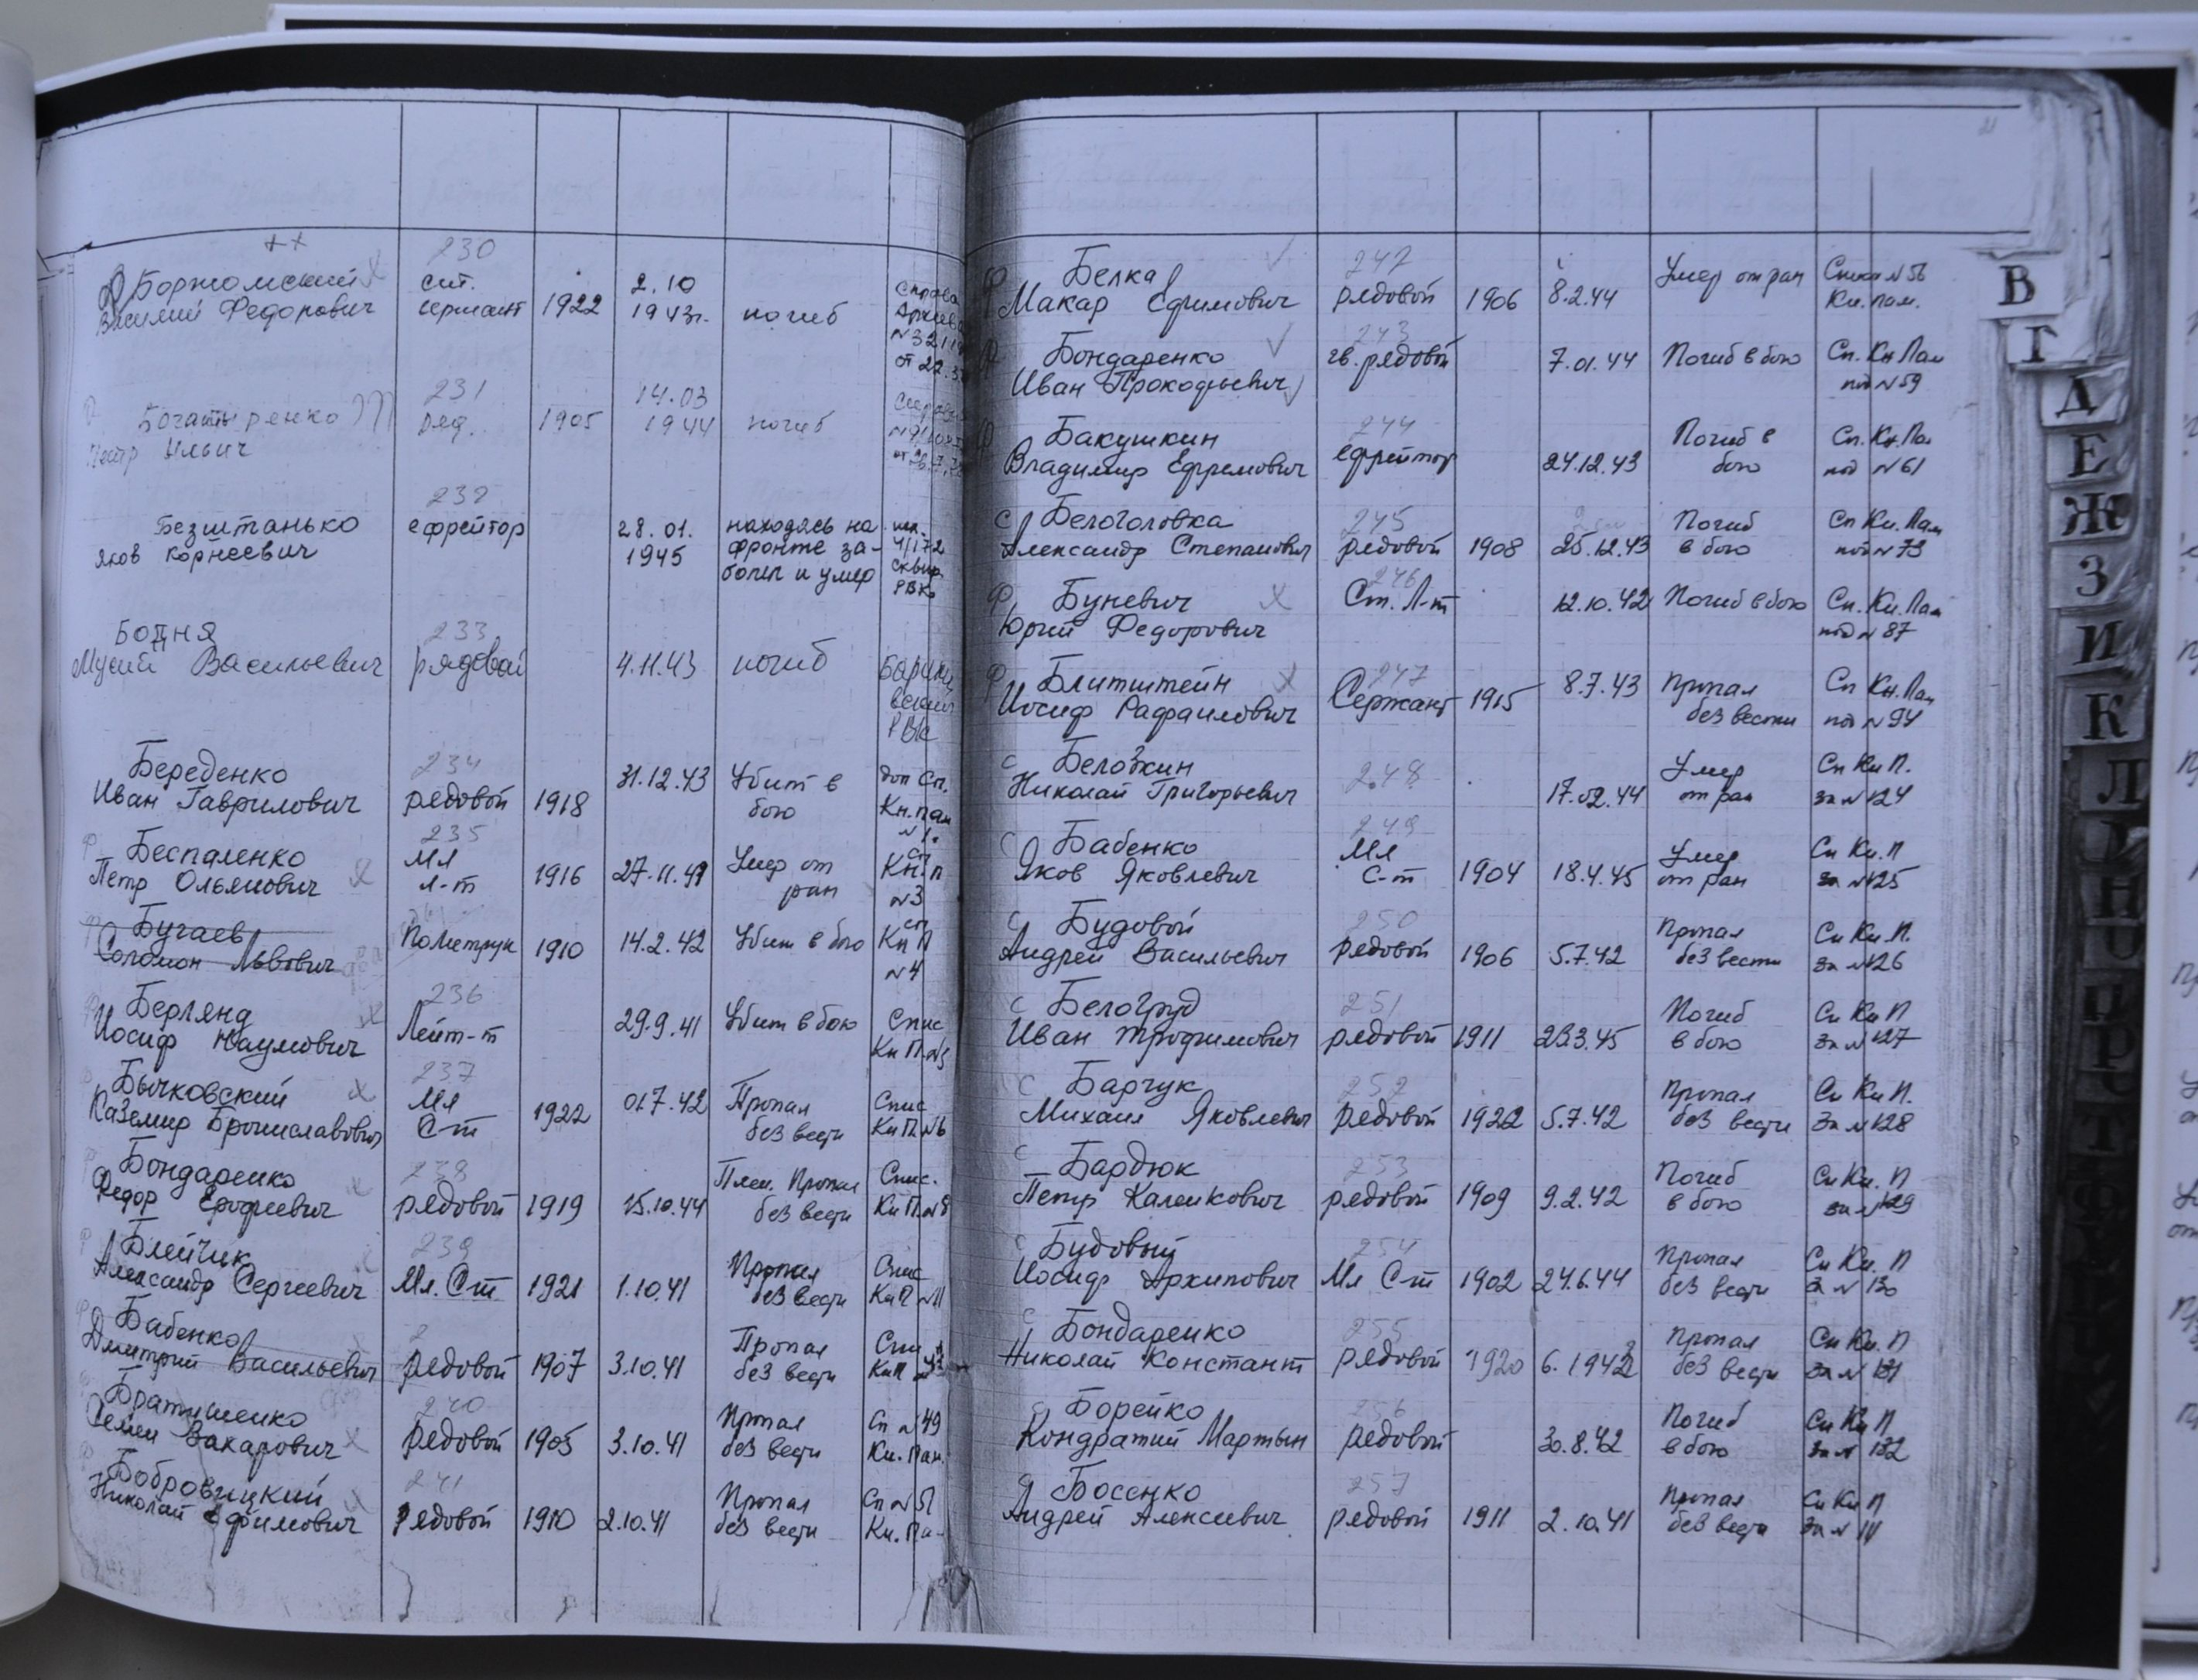 ++
230
Боржомский ст. 2.10
Василий Федорович сержант 1922 1943г. погиб
231
Богатыренко ряд. 1905 14.03 1944 погиб
Петр Ильич
232
Безштанько ефрейтор 28.01. находясь на
Яков Корнеевич 1945 фронте за-
болел и умер РВК
233
Бодня
Мусий Васильевич рядовой 4.11.43 погиб
РВК
234
Береденко 31.12.43 Убит в доп Сп.
Иван Гаврилович рядовой 1918 бою Кн.пам
№1.
235
Беспаленко Мл Умер от Сп
Петр Ольянович л-т 1916 27.11.41 ран Кн.п
№3
Бугаев Сп
Соломон Львович Политрук 1910 14.2.42 Убит в бою Кн П
№4
236
Берлянд Спис
Иосиф Наумович Лейт-т 29.9.41 Убит в бою Кн П. №5
237
Бычковский Мл Пропал Спис
Каземир Брониславович С-т 1922 01.7.42 без вести Кн П. №6
238
Бондаренко Плен. Пропал Спис.
Федор Ерофеевич рядовой 1919 15.10.44 без вести Кн П. №8
239
Блейчик Пропал Спис
Александр Сергеевич Мл. С-т 1921 1.10.41 без вести Кн П №11
Бабенко Пропал
Дмитрий Васильевич рядовой 1907 3.10.41 без вести Кн П
240
Братушенко Пропал Сп №49
Семен Захарович рядовой 1905 3.10.41 без вести Кн. Пам.
241
Бобровицкий Пропал Сп №51
Николай Ефимович рядовой 1910 2.10.41 без вести Кн. Па-
21
242
Белка Умер от ран Списки №56
Макар Ефимович рядовой 1906 8.2.44 Кн. пам.
243
Бондаренко гв. рядовой 7.01.44 Погиб в бою Сп. Кн Пам
Иван Прокофьевич под №59
244
Бакушкин Погиб в Сп. Кн. Пам
Владимир Ефремович ефрейтор 24.12.43 бою под №61
245
Белоголовка Погиб Сп Кн. Пам
Александр Степанович рядовой 1908 25.12.43 в бою под №73
246
Буневич Ст. Л-т 12.10.42 Погиб в бою Сп. Кн. Пам
Юрий Федорович под №87
247
Блитштейн 8.7.43 Пропал Сп Кн. Пам
Иосиф Рафаилович Сержант 1915 без вести под №94
248
Белозкин Умер Сп Кн П.
Николай Григорьевич 17.02.44 от ран за №124
249
Бабенко Мл Умер Сп Кн. П
Яков Яковлевич С-т 1904 18.4.45 от ран за №125
250
Будовой Пропал Сп Кн. П.
Андрей Васильевич рядовой 1906 5.7.42 без вести за №126
251
Белогруд Погиб Сп Кн П
Иван Трофимович рядовой 1911 в бою за №127
252
Барчук Пропал Сп Кн П.
Михаил Яковлевич рядовой 1922 5.7.42 без вести За №128
253
Бардюк Погиб Сп Кн. П
Петр Каленкович рядовой 1909 9.2.42 в бою за №129
254
Будовый Пропал Сп Кн. П
Иосиф Архипович Мл С-т 1902 24.6.44 без вести за № 130
255
Бондаренко Пропал Сп Кн. П
Николай Констант рядовой 1920 6. 1942 без вести за № 131
256
Борейко Погиб Сп Кн П
Кондратий Мартын рядовой 30.8.42 в бою за № 132
257
Босенко Пропал Сп Кн П
Андрей Алексеевич рядовой 1911 2.10.41 без вести за №
В
Г
Д
Е
Ж
З
И
К
Л
Н
П
Р
Т